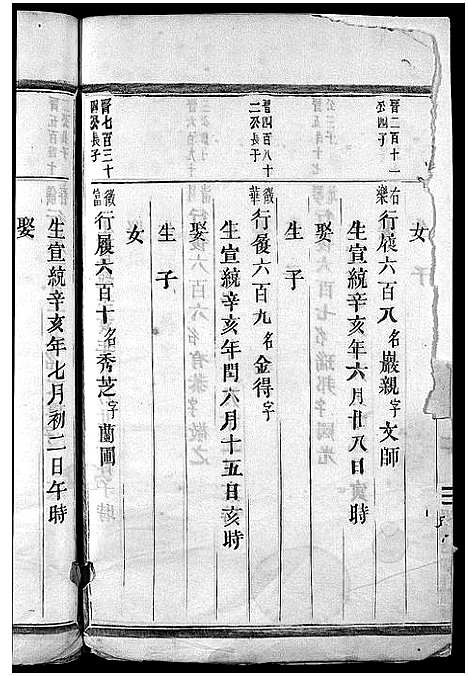 女
晉二百十一
公四子
右樂行履六百八名巖親字文師
生宣統辛亥年六月廿八日寅時
娶
生子
晉四百八十
二公長子
徵華行履六百九名金得字
生宣統辛亥年閏六月十五日亥時
娶
生子
女
晉七百三十
四公長子
徵富行履六百十名秀芝字蘭圃
生宣統辛亥年七月初二日午時
娶